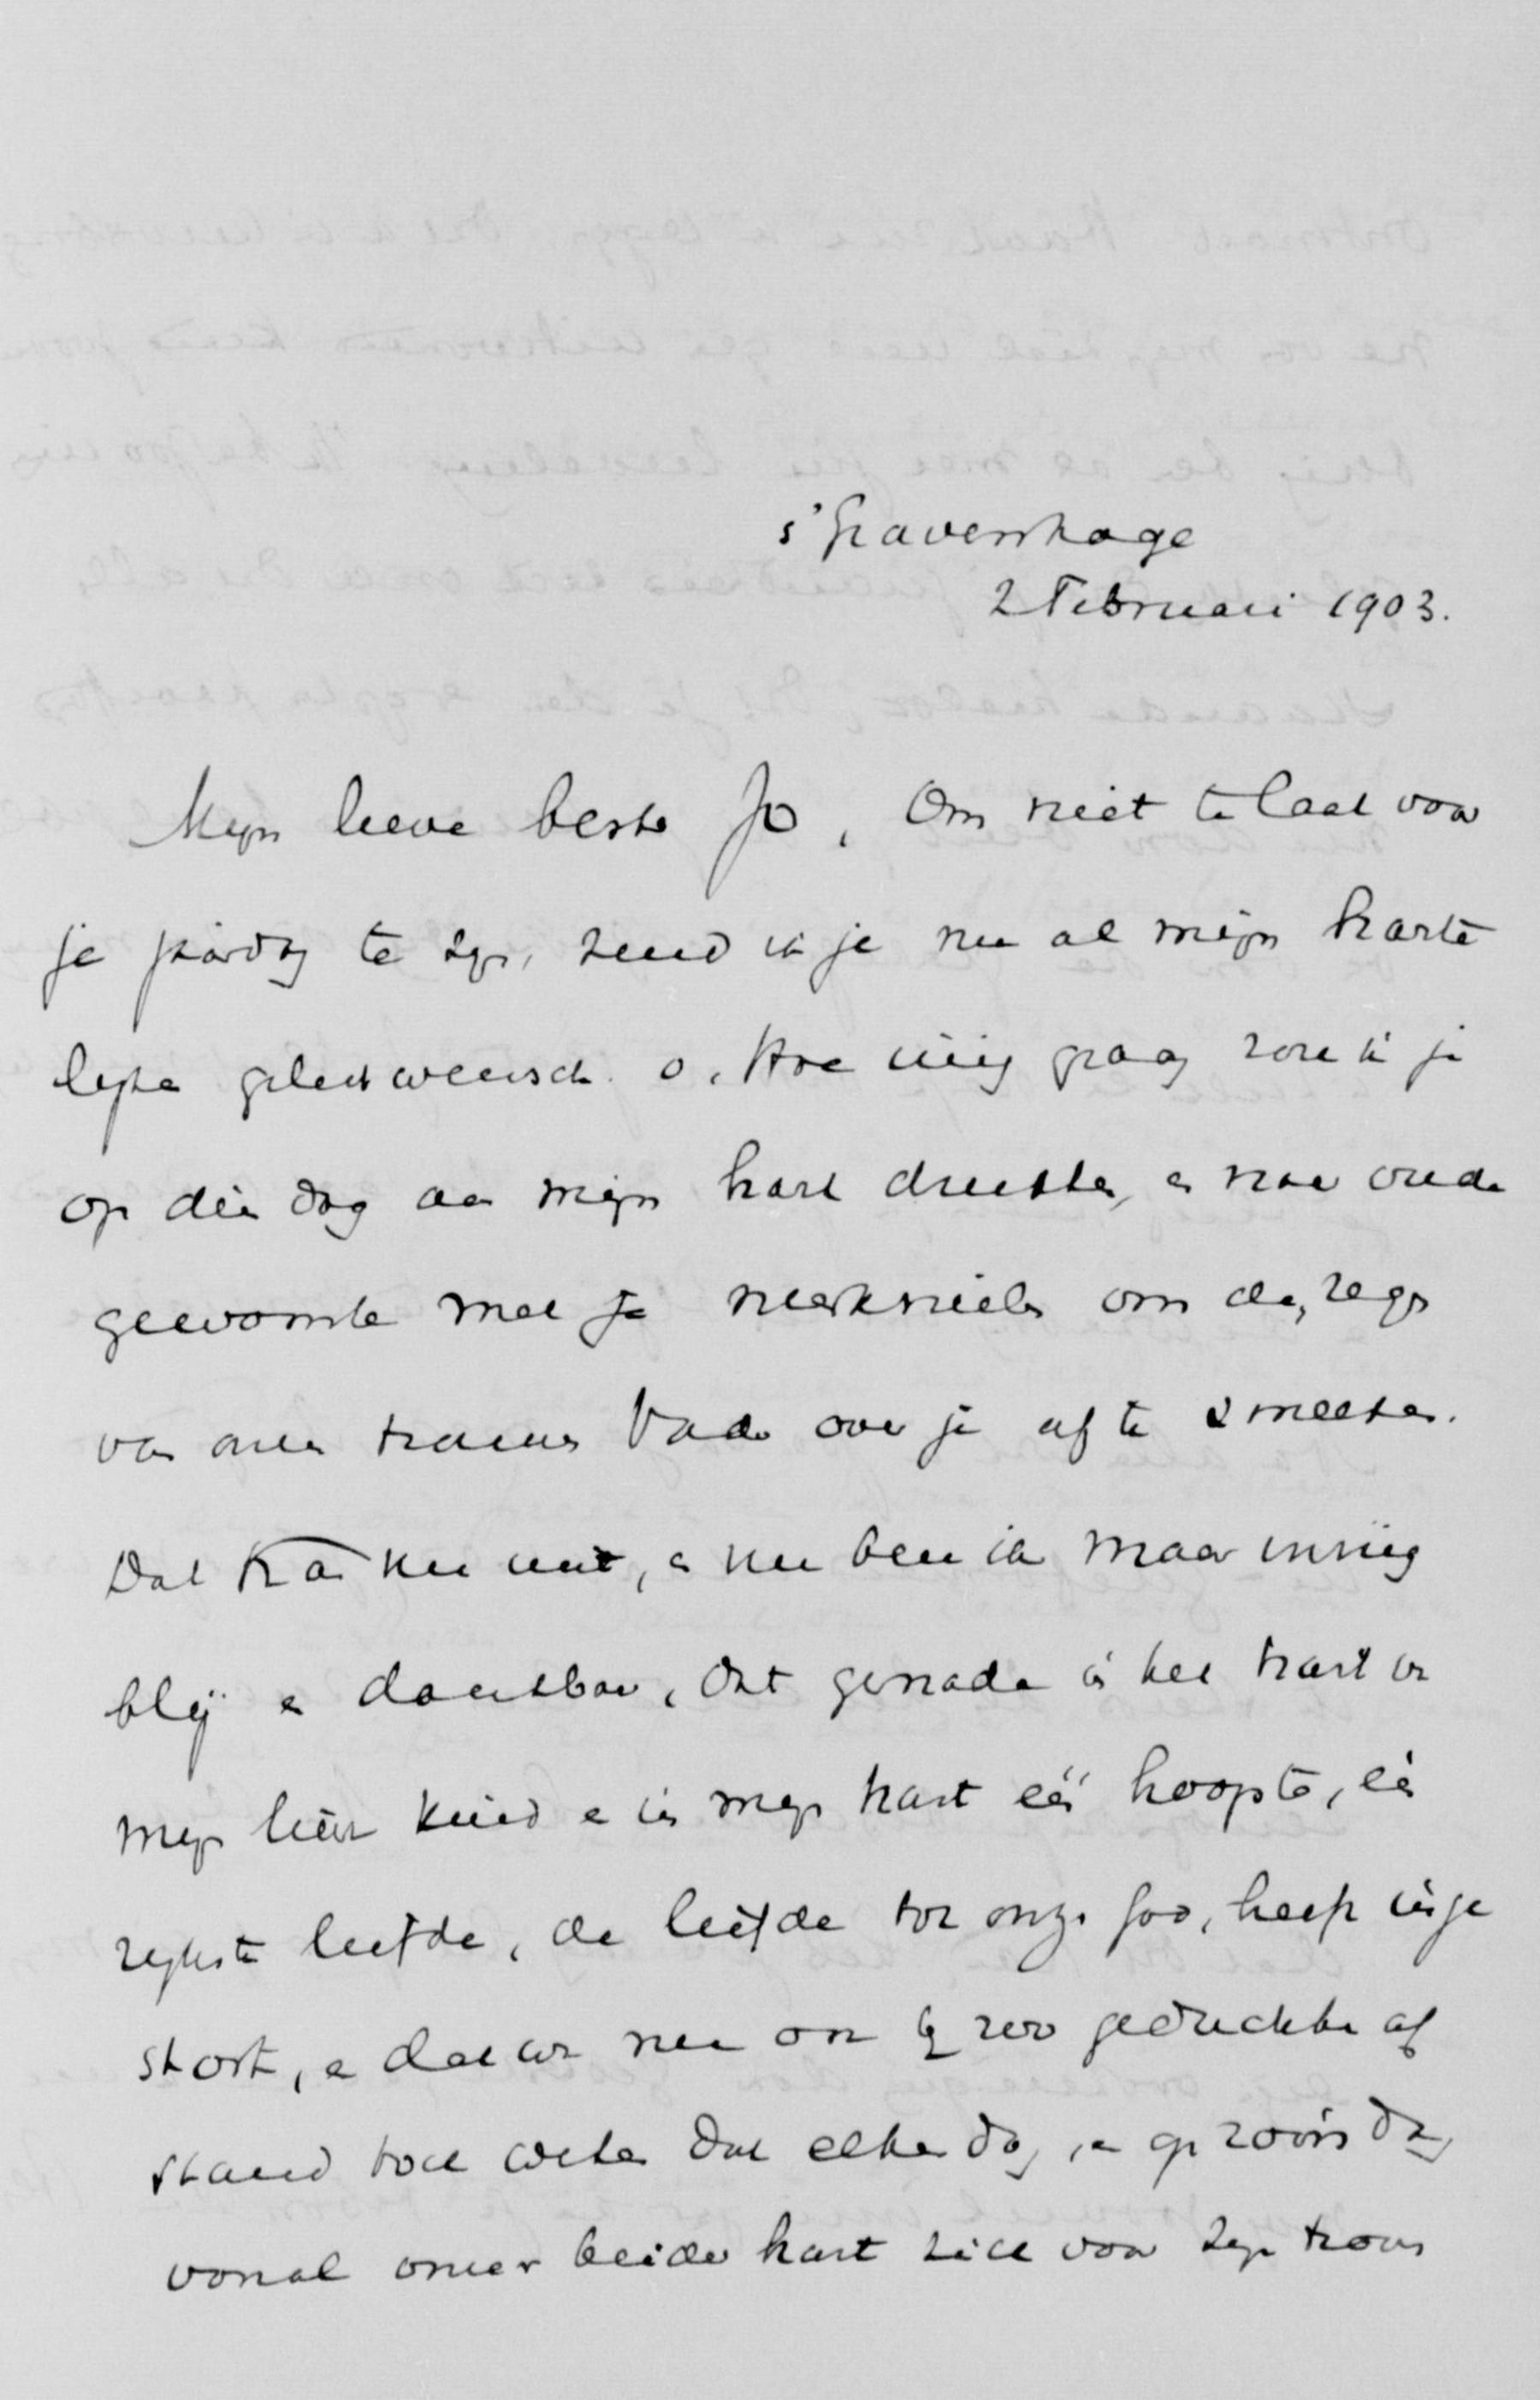 s'Gravenhage
2 Februari 1903.
Mijn lieve beste Jo, Om niet te laat voor
je jaardag te zijn, zend ik je nu al mijn harte
lijke gelukwensch. o, Hoe innig graag zou ik je
op dien dag aan mijn hart drukken, en naar oude
gewoonte met je neerknielen om den zegen
van onzen trouwen Vader over je af te smeeken.
Dat kan nu niet, en nu ben ik maar innig
blij en dankbaar, dat genade in het hart van
mijn lieve kind en in mijn hart één hoopte, één
rijkste liefde, de liefde tot onze God, heeft inge
stort, en dat we nu on bij zoo geduchte af
stand toch weten dat elken dag, en op zoo'n dag
vooral onzer beider hart zich voor Zijn troon